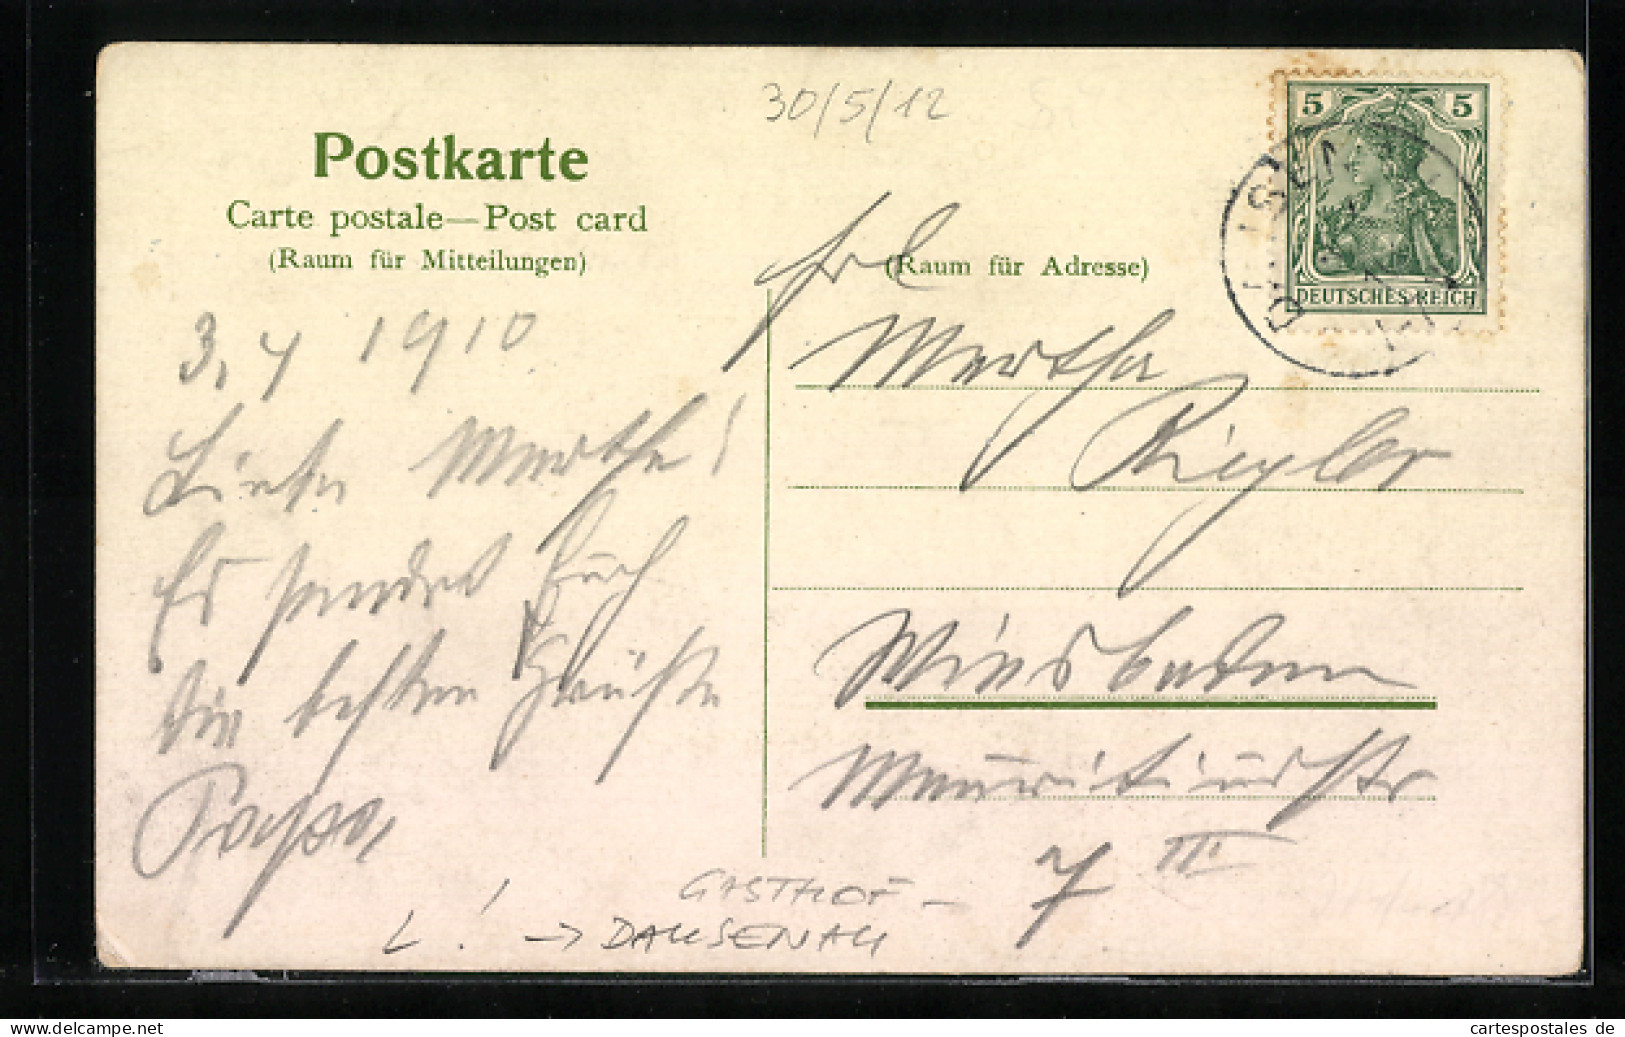 30/5/12
Postkarte
Carte postale—Post card
(Raum für Mitteilungen)
(Raum für Adresse)
5 5
DEUTSCHES REICH
3,4 1910
Liebe Marthe!
Es sendet Euch
die besten Grüße
Papa,
Frl
Martha
Riegler
Wiesbaden
Mauritiusstr
7 III
GASTHOF –
L! → DAUSENAU
www.delcampe.net
cartespostales de